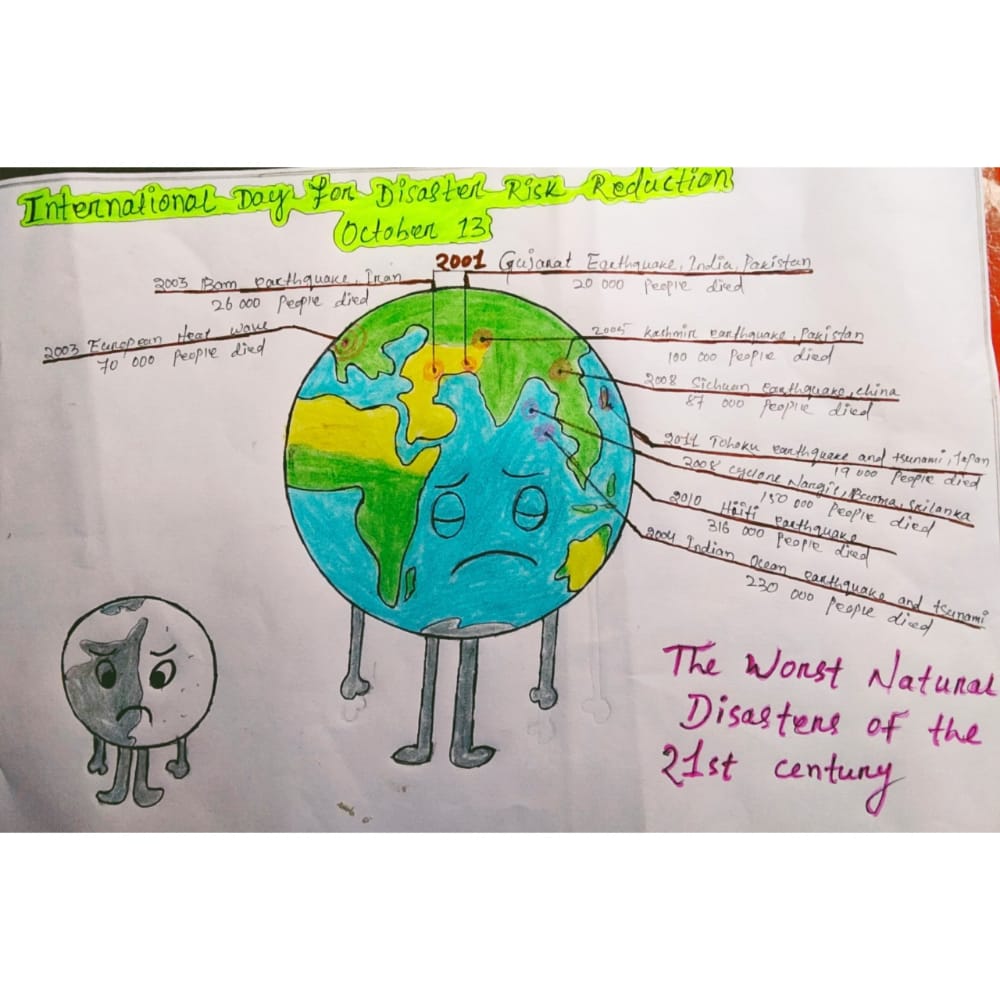 International Day for Disaster Risk Reduction
October 13
2001 Gujarat Earthquake, India, Pakistan
20 000 People died
2003 Bam earthquake, Iran
26 000 People died
2003 European Heat wave
70 000 People died
2005 Kashmir earthquake, Pakistan
100 000 People died
2008 Sichuan earthquake, china
87 000 People died
2011 Tohoku earthquake and tsunami, Japan
19 000 People died
2008 cyclone Nargis, Burma, Srilanka
150 000 People died
2010 Haiti earthquake
316 000 People died
2004 Indian Ocean earthquake and tsunami
230 000 People died
The Worst Natural
Disasters of the
21st century